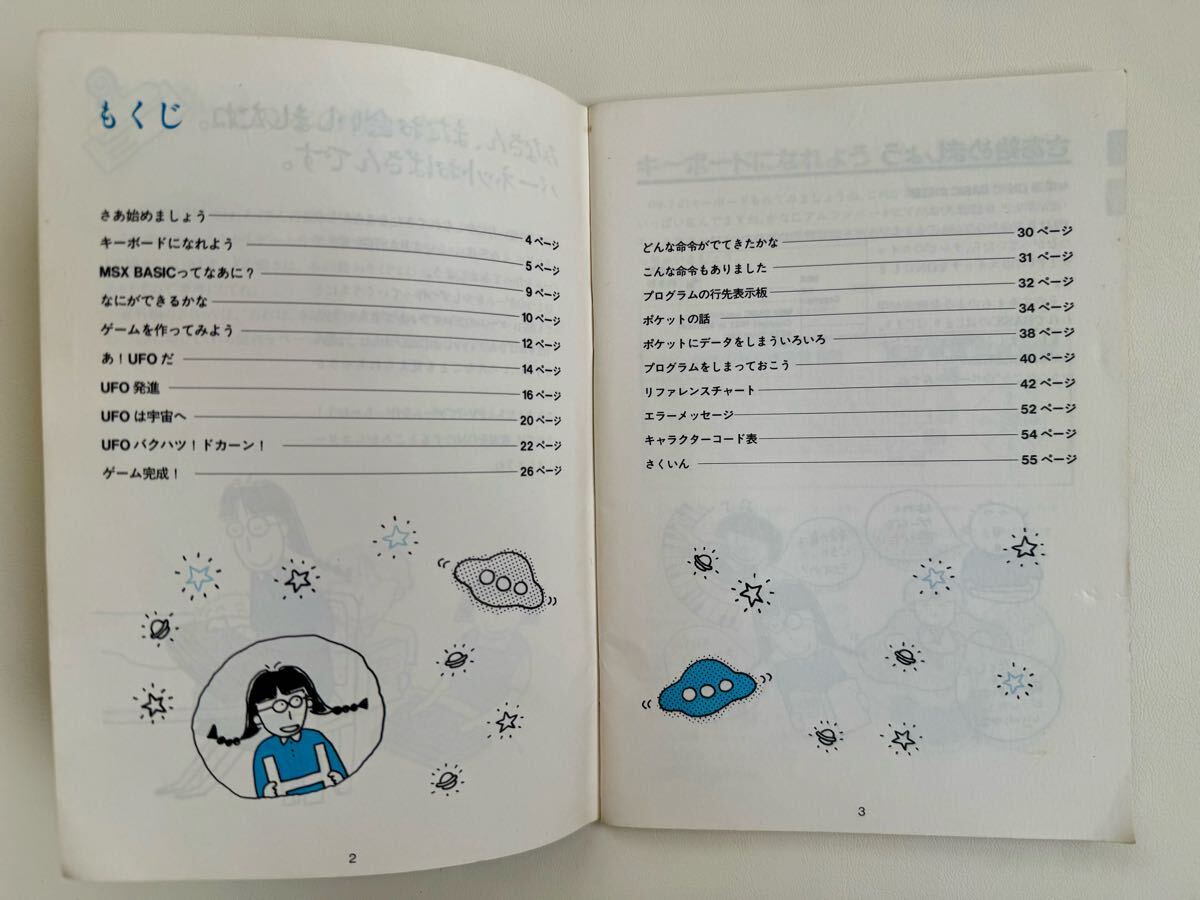 もくじ
さあ始めましょう 4ページ
キーボードになれよう 5ページ
MSX BASICってなあに？ 9ページ
なにができるかな 10ページ
ゲームを作ってみよう 12ページ
あ！UFOだ 14ページ
UFO発進 16ページ
UFOは宇宙へ 20ページ
UFOバクハツ！ドカーン！ 22ページ
ゲーム完成！ 26ページ
2
どんな命令がでてきたかな 30ページ
こんな命令もありました 31ページ
プログラムの行先表示板 32ページ
ポケットの話 34ページ
ポケットにデータをしまういろいろ 38ページ
プログラムをしまっておこう 40ページ
リファレンスチャート 42ページ
エラーメッセージ 52ページ
キャラクターコード表 54ページ
さくいん 55ページ
3